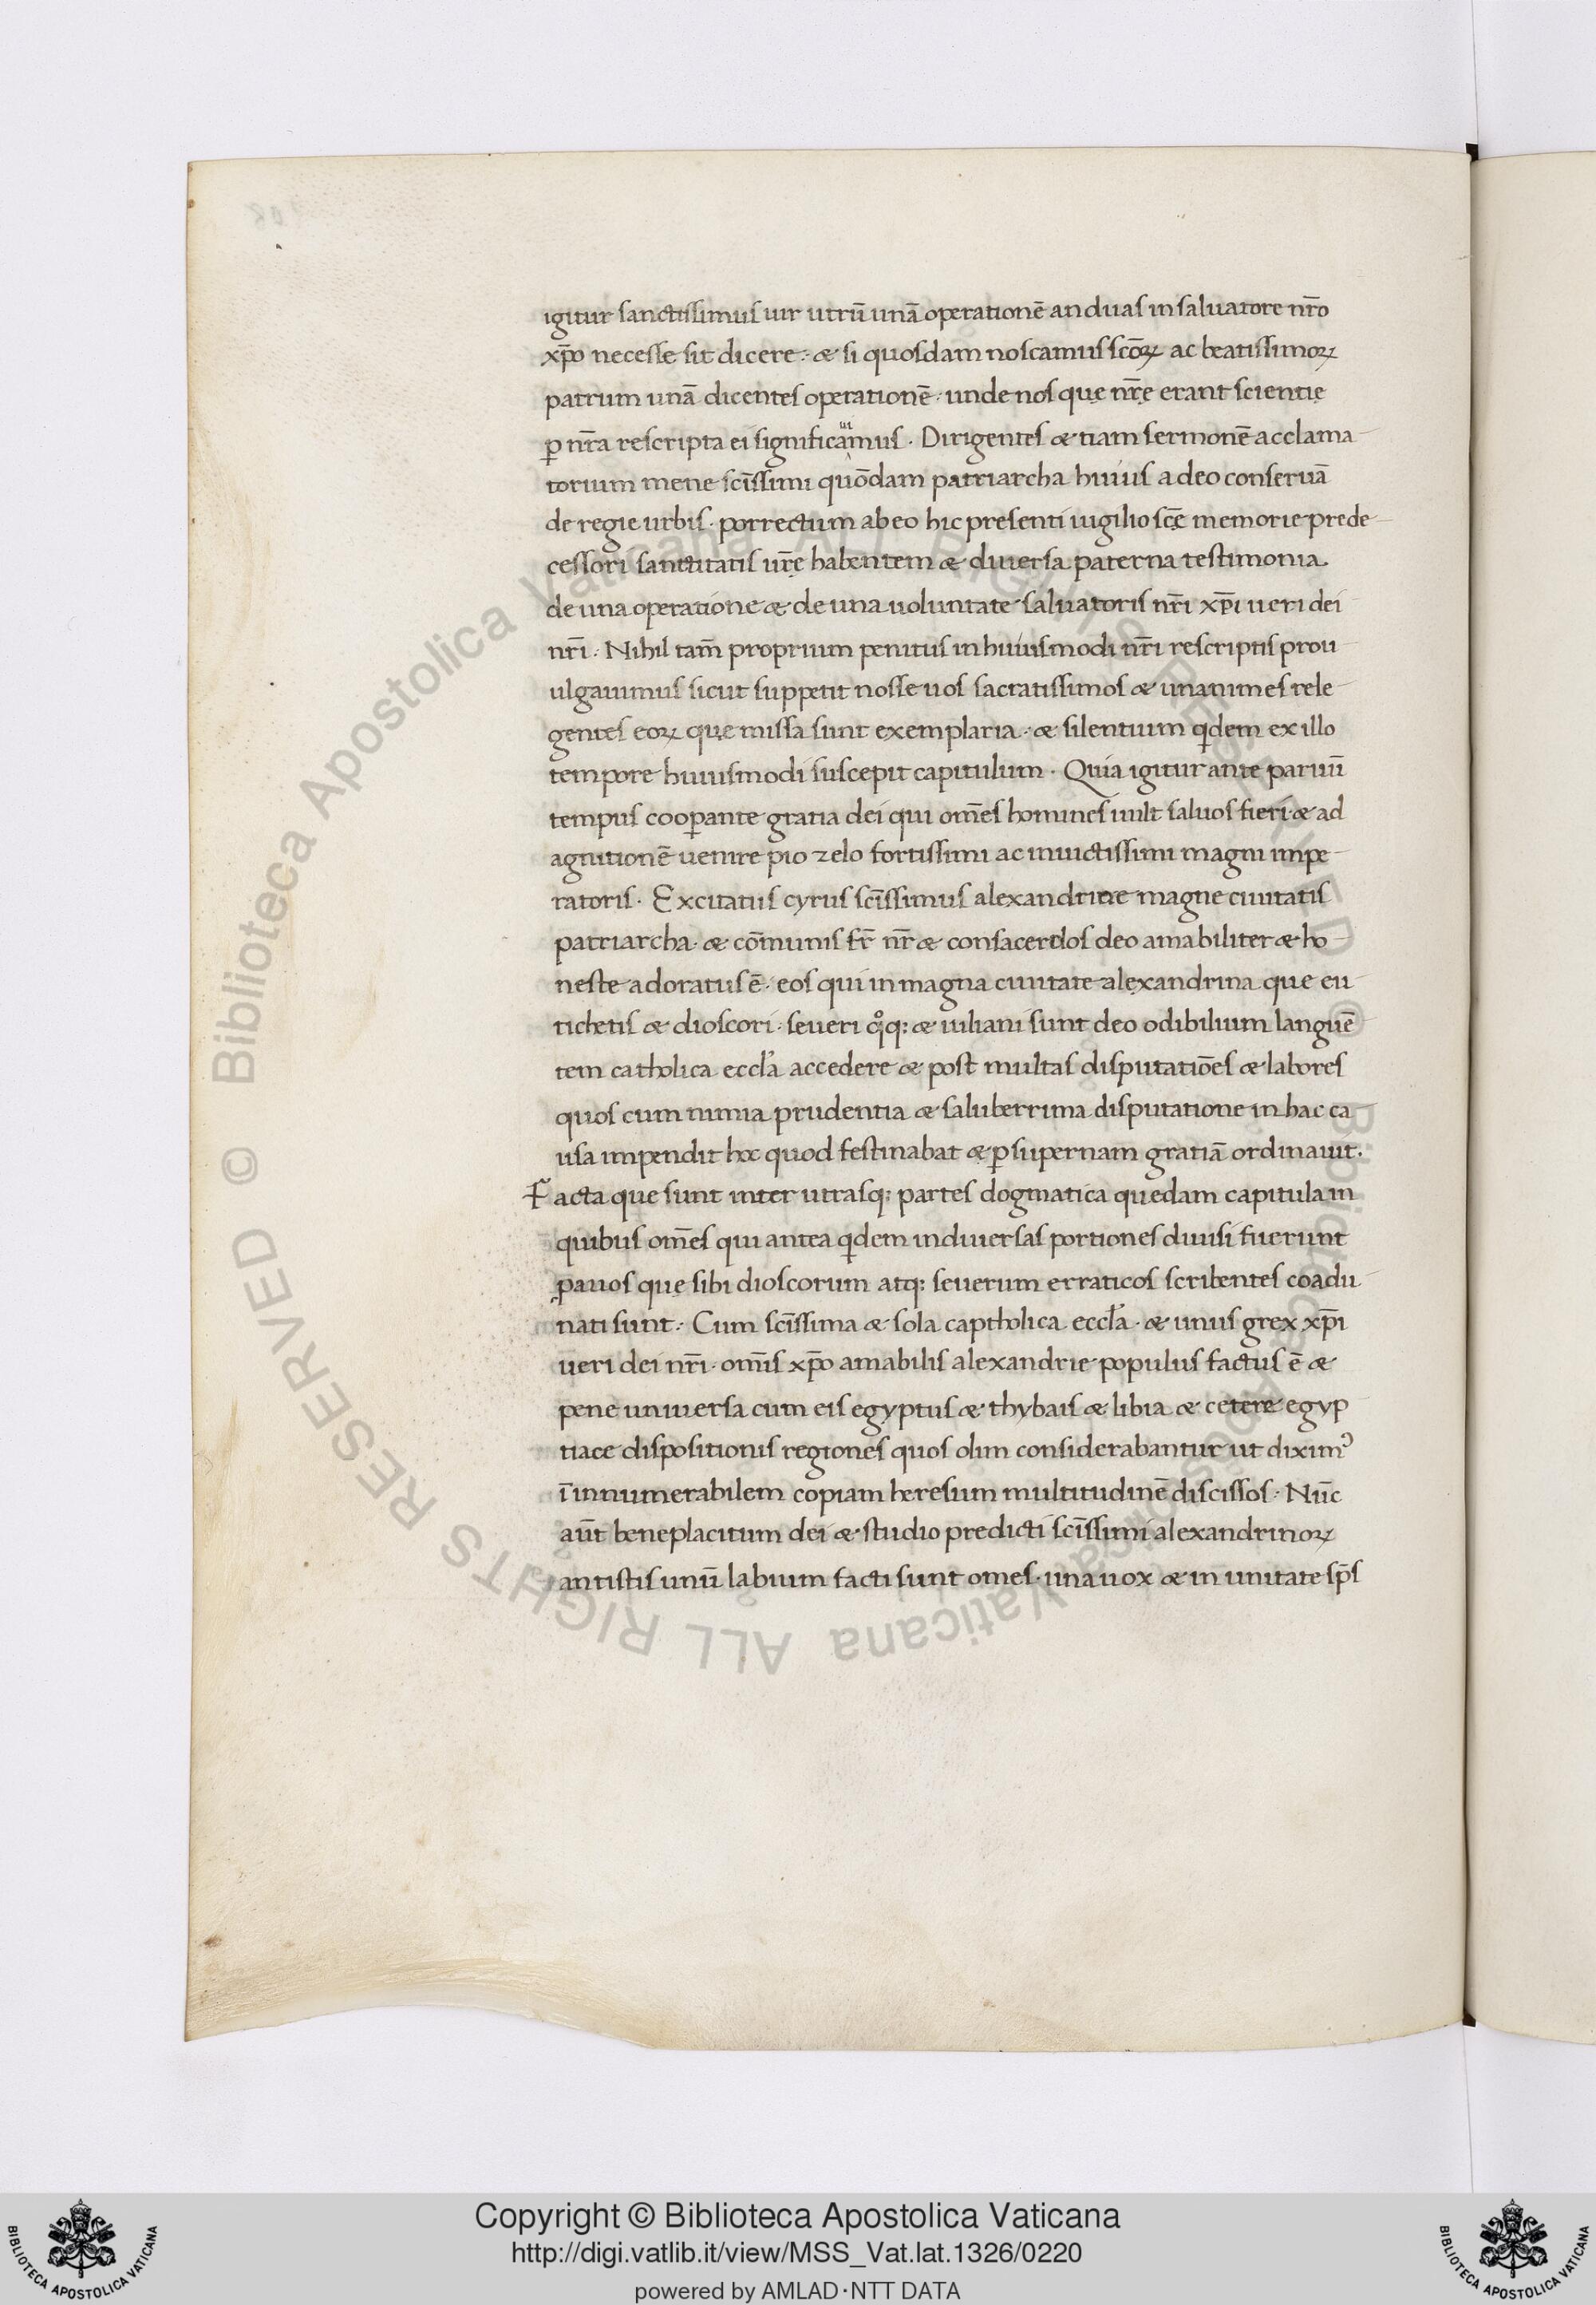 igitur sanctissimus uir utrū unā operationē an duas in saluatore nr̄o
xp̄o necesse sit dicere · & si quosdam noscamus scōꝝ ac beatissimoꝝ
patrum unā dicentes operationē · unde nos quę nr̄ę erant scientię
ꝑ nr̄a rescripta ei significauimus · Dirigentes & tiam sermonē acclama-
torium mene scīssimi quōdam patriarcha huius a deo conseruā
de regie urbis · porrectum ab eo hic presenti uigilio scē memorie prede-
cessori sanctitatis ur̄ę habentem & diuersa paterna testimonia
de una operatione & de una uoluntate saluatoris nr̄i xp̄i ueri dei
nr̄i · Nihil tam̄ proprium penitus in huiusmodi nr̄i rescriptis prou-
ulgauimus sicut suppetit nosse uos sacratissimos & unanimes rele-
gentes eoꝝ quę missa sunt exemplaria · & silentium qͥdem ex illo
tempore huiusmodi suscepit capitulum · Quia igitur ante paruū
tempus cooꝑante gratia dei qui om̄es homines uult saluos fieri & ad
agnitionē uenire pio zelo fortissimi ac inuictissimi magni impe-
ratoris · Excitatus cyrus scīssimus alexandrine magne ciuitatis
patriarcha & cōmunis fr̄ nr̄ & consacerdos deo amabiliter & ho-
neste adoratus ē · eos qui in magna ciuitate alexandrina que eu-
tichetis & dioscori · seueri qͦq: & iuliani sunt deo odibilium languē-
tem catholica eccl̄a accedere & post multas disputatiōes & labores
quos cum nimia prudentia & saluberrima disputatione in hac ca-
usa impendit hoc quod festinabat & ꝑ supernam gratiā ordinauit.
Facta que sunt inter utrasq: partes dogmatica quedam capitula in
quibus om̄es qui antea qͥdem in diuersas portiones diuisi fuerunt
ꝑauos quę sibi dioscorum atq: seuerum erraticos scribentes coadu-
nati sunt · Cum scīssima & sola captholica eccl̄a · & unus grex xp̄i
ueri dei nr̄i · om̄is xp̄o amabilis alexandrie populus factus ē &
pene uniuersa cum eis egyptus & thybais & libia & cetere egyp
tiace dispositionis regiones quos olim considerabantur ut diximꝰ
ī innumerabilem copiam heresum multitudinē discissos · Nūc
aūt beneplacitum dei & studio predicti scīssimi alexandrinoꝝ
antistis unū labium facti sunt omes · una uox & in unitate sp̄s
© Biblioteca Apostolica Vaticana ALL RIGHTS RESERVED © Biblioteca Apostolica Vaticana ALL RIGHTS RESERVED
Copyright © Biblioteca Apostolica Vaticana
http://digi.vatlib.it/view/MSS_Vat.lat.1326/0220
powered by AMLAD·NTT DATA
BIBLIOTECA APOSTOLICA VATICANA
BIBLIOTECA APOSTOLICA VATICANA